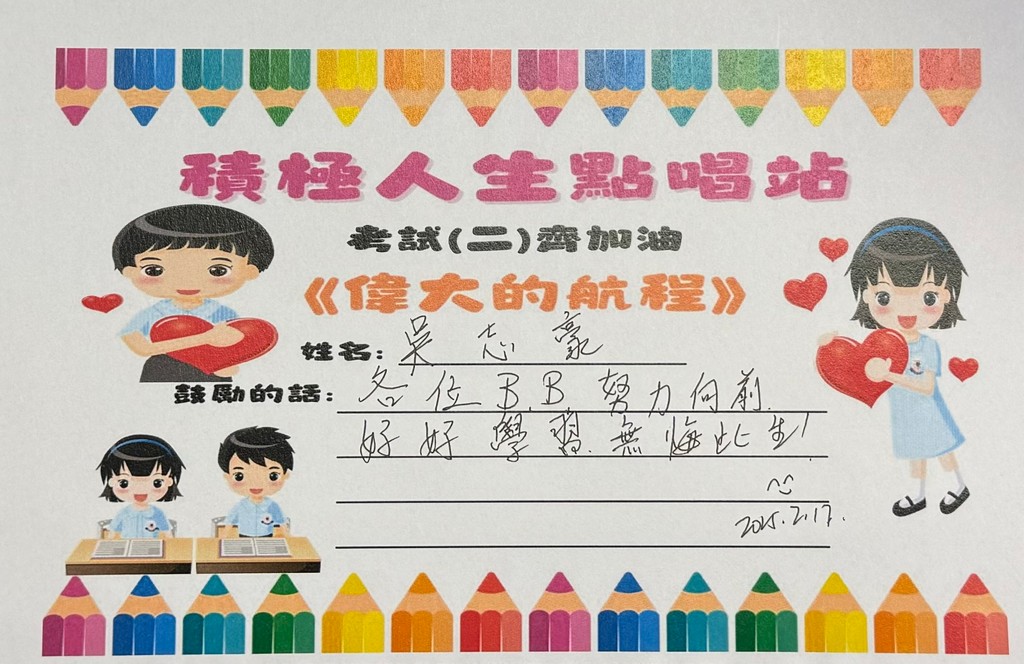 積極人生點唱站
考試(二)齊加油
《偉大的航程》
姓名: 吳志豪
鼓勵的話: 各位B.B努力向前.
好好學習.無悔此生!
2025.2.17.